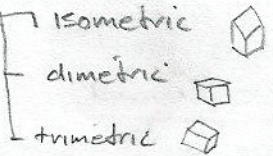 isometric
dimetric
trimetric